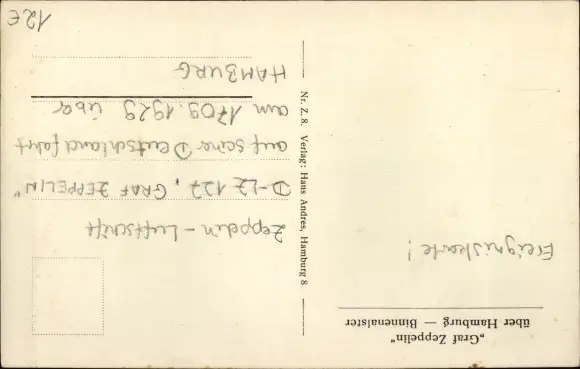 „Graf Zeppelin“
über Hamburg — Binnenalster
Ereigniskarte!
Nr. Z. 8. Verlag: Hans Andres, Hamburg 8
Zeppelin - Luftschiff
D-LZ 127 „GRAF ZEPPELIN"
auf seiner Deutschlandfahrt
am 1709.1929 über
HAMBURG
12€